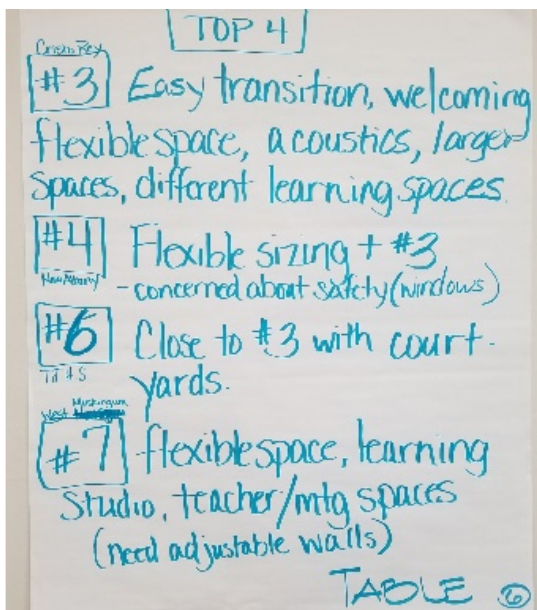 TOP 4
#3 Easy transition, welcoming
flexible space, acoustics, larger
spaces, different learning spaces.
#4 Flexible sizing + #3
New Albany
- concerned about safety (windows)
#6 Close to #3 with court-
yards.
West Muskingum
#7 flexible space, learning
Studio, teacher/mtg spaces
(need adjustable walls)
TABLE 6